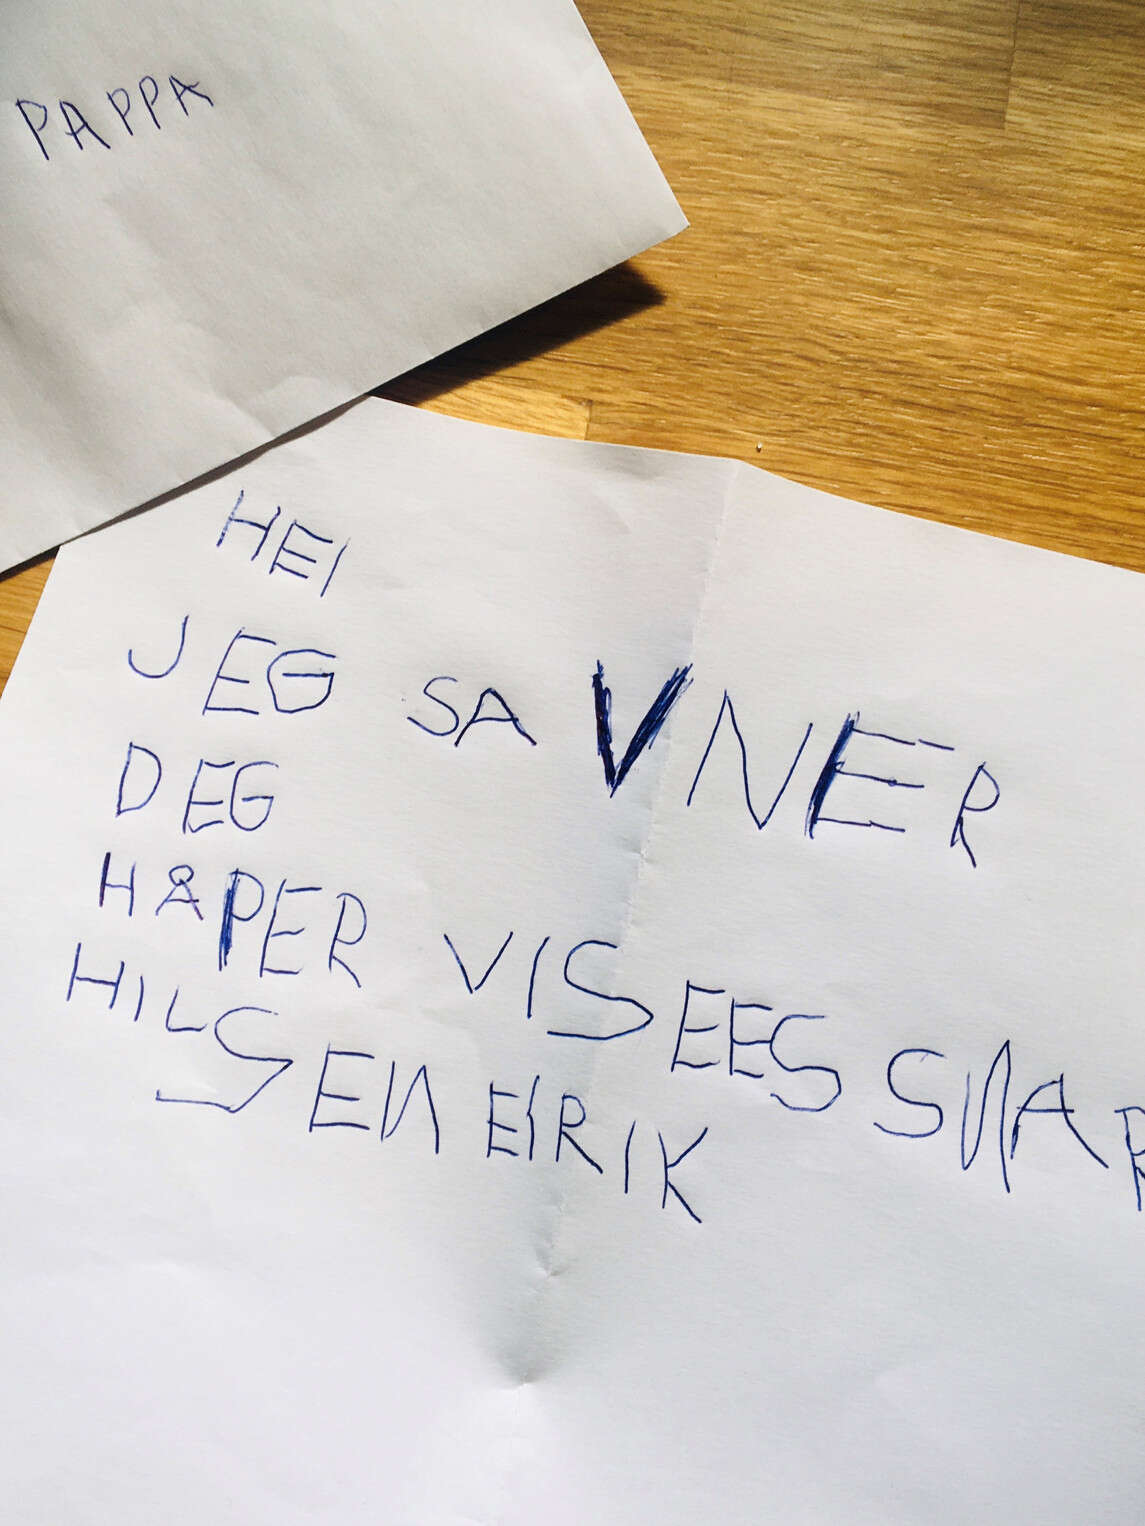 PAPPA
HEI
JEG SAVNER
DEG
HÅPER VI SEES SNAR
HILSEN EIRIK